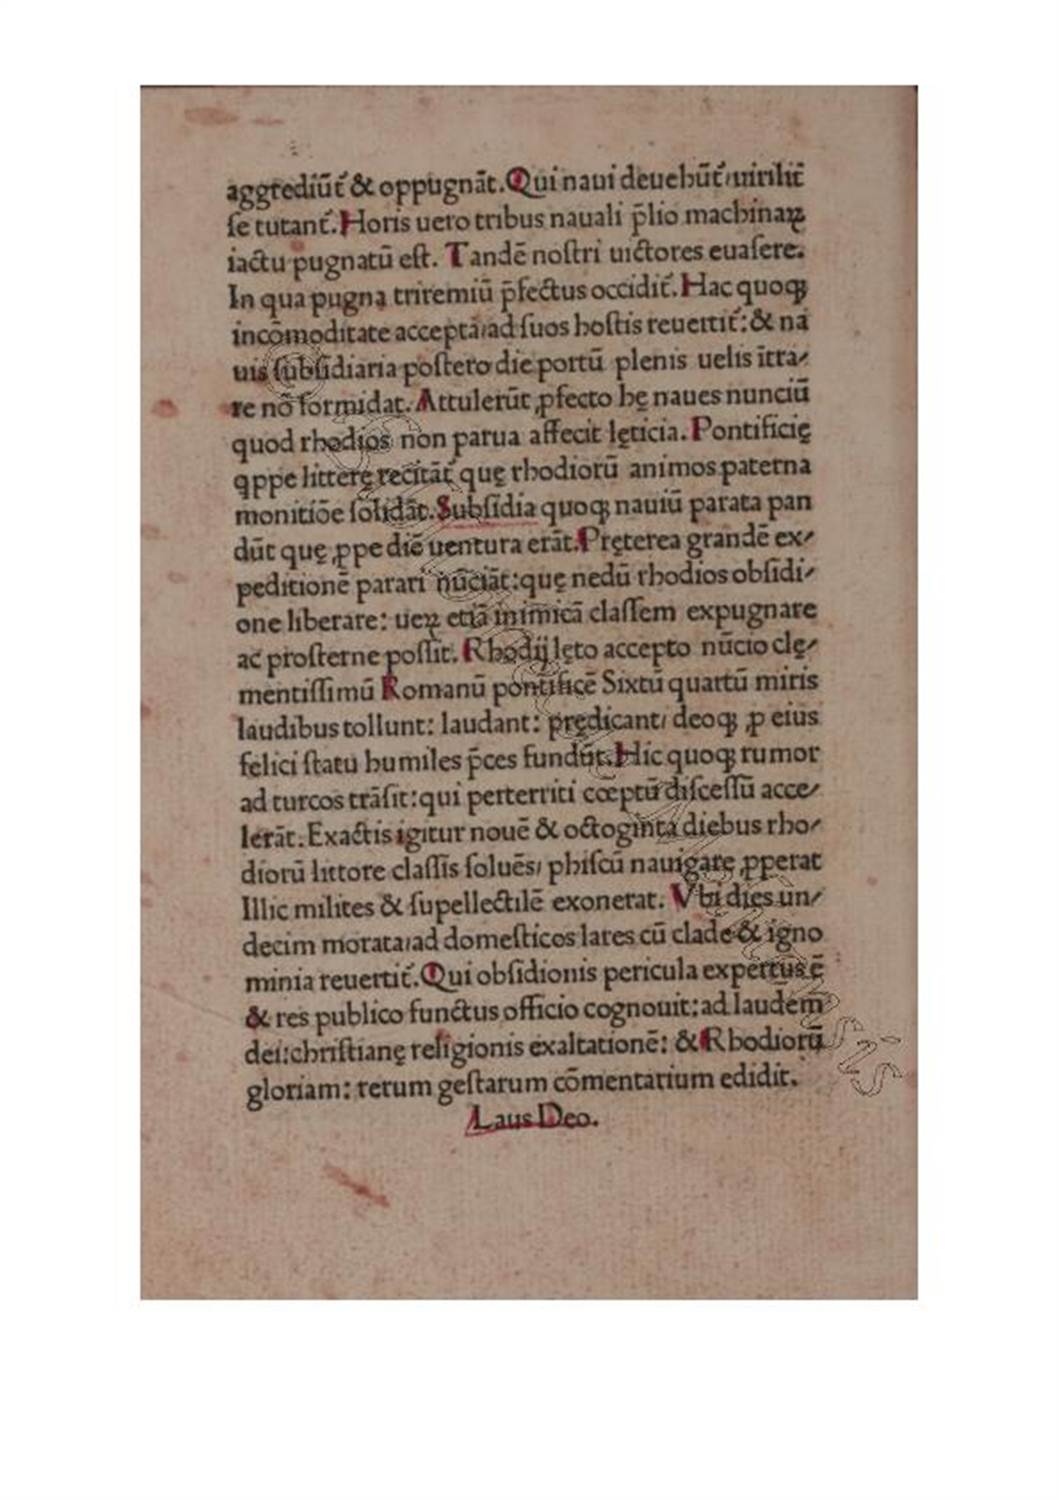 aggrediūt᷑ & oppugnāt. Qui naui deuehūt᷑ uirilit᷑
ſe tutant᷑. Horis uero tribus nauali p̄lio machinaꝝ
iactu pugnatū eſt. Tandē noſtri uictores euaſere.
In qua pugna triremiū p̄fectus occidit᷑. Hac quoqꝫ
incōmoditate accepta ad ſuos hoſtis reuertit᷑: & na
uis ſubſidiaria poſtero die portū plenis uelis ītra⸗
re nō formidat. Attulerūt ꝓfecto hę naues nunciū
quod rhodios non parua affecit lęticia. Pontificię
qppe litterę recitāt᷑ quę rhodiorū animos paterna
monitiōe ſolidāt. Subſidia quoqꝫ nauiū parata pan
dūt quę ꝓpe diē uentura erāt. Pręterea grandē ex⸗
peditionē parari nūciāt: quę nedū rhodios obſidi⸗
one liberare: ueꝝ etiā inimicā claſſem expugnare
ac proſterne poſſit. Rhodij lęto accepto nūcio clę⸗
mentiſſimū Romanū pontificē Sixtū quartū miris
laudibus tollunt: laudant: prędicant/ deoqꝫ ꝓ eius
felici ſtatu humiles p̄ces fundūt. Hic quoqꝫ rumor
ad turcos trāſit: qui perterriti cœptū diſceſſū acce⸗
lerāt. Exactis igitur nouē & octoginta diebus rho⸗
diorū littore claſſis ſoluēs/ phiſcū nauigare ꝓperat
Illic milites & ſupellectilē exonerat. Vbi dies un⸗
decim morata/ ad domeſticos lares cū clade & igno
minia reuertit᷑. Qui obſidionis pericula expertus ē
& res publico functus officio cognouit: ad laudem̄
dei: chriſtianę religionis exaltationē: & Rhodiorū
gloriam: rerum geſtarum cōmentarium edidit.
Laus Deo.